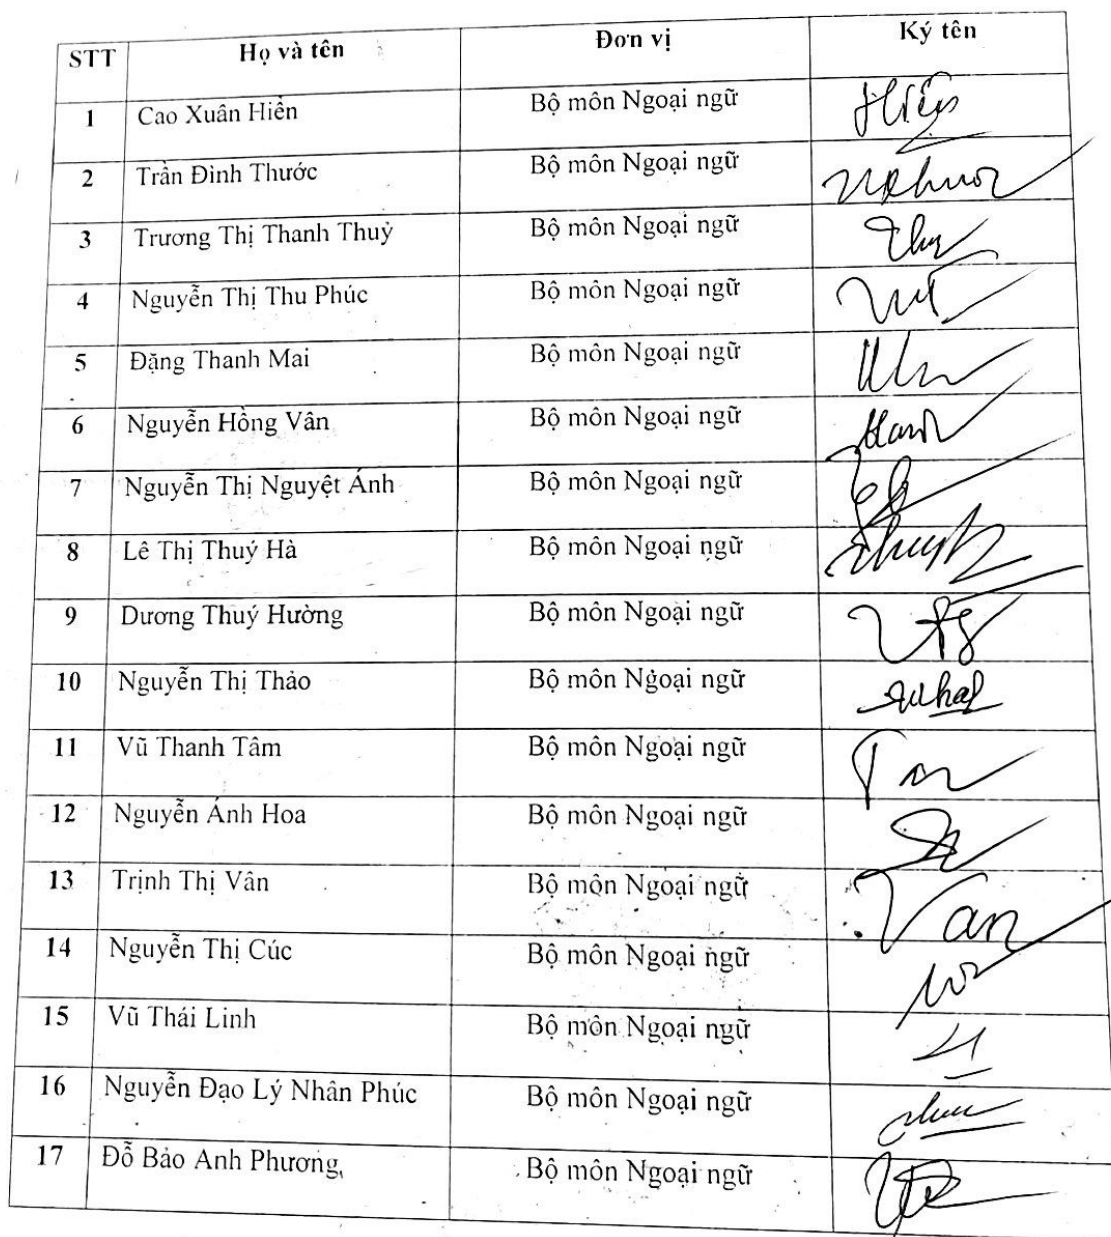 STT Họ và tên Đơn vị Ký tên
1 Cao Xuân Hiền Bộ môn Ngoại ngữ
2 Trần Đình Thước Bộ môn Ngoại ngữ
3 Trương Thị Thanh Thuỷ Bộ môn Ngoại ngữ
4 Nguyễn Thị Thu Phúc Bộ môn Ngoại ngữ
5 Đặng Thanh Mai Bộ môn Ngoại ngữ
6 Nguyễn Hồng Vân Bộ môn Ngoại ngữ
7 Nguyễn Thị Nguyệt Ánh Bộ môn Ngoại ngữ
8 Lê Thị Thuý Hà Bộ môn Ngoại ngữ
9 Dương Thuý Hường Bộ môn Ngoại ngữ
10 Nguyễn Thị Thảo Bộ môn Ngoại ngữ
11 Vũ Thanh Tâm Bộ môn Ngoại ngữ
12 Nguyễn Ánh Hoa Bộ môn Ngoại ngữ
13 Trịnh Thị Vân Bộ môn Ngoại ngữ Van
14 Nguyễn Thị Cúc Bộ môn Ngoại ngữ
15 Vũ Thái Linh Bộ môn Ngoại ngữ
16 Nguyễn Đạo Lý Nhân Phúc Bộ môn Ngoại ngữ
17 Đỗ Bảo Anh Phương Bộ môn Ngoại ngữ